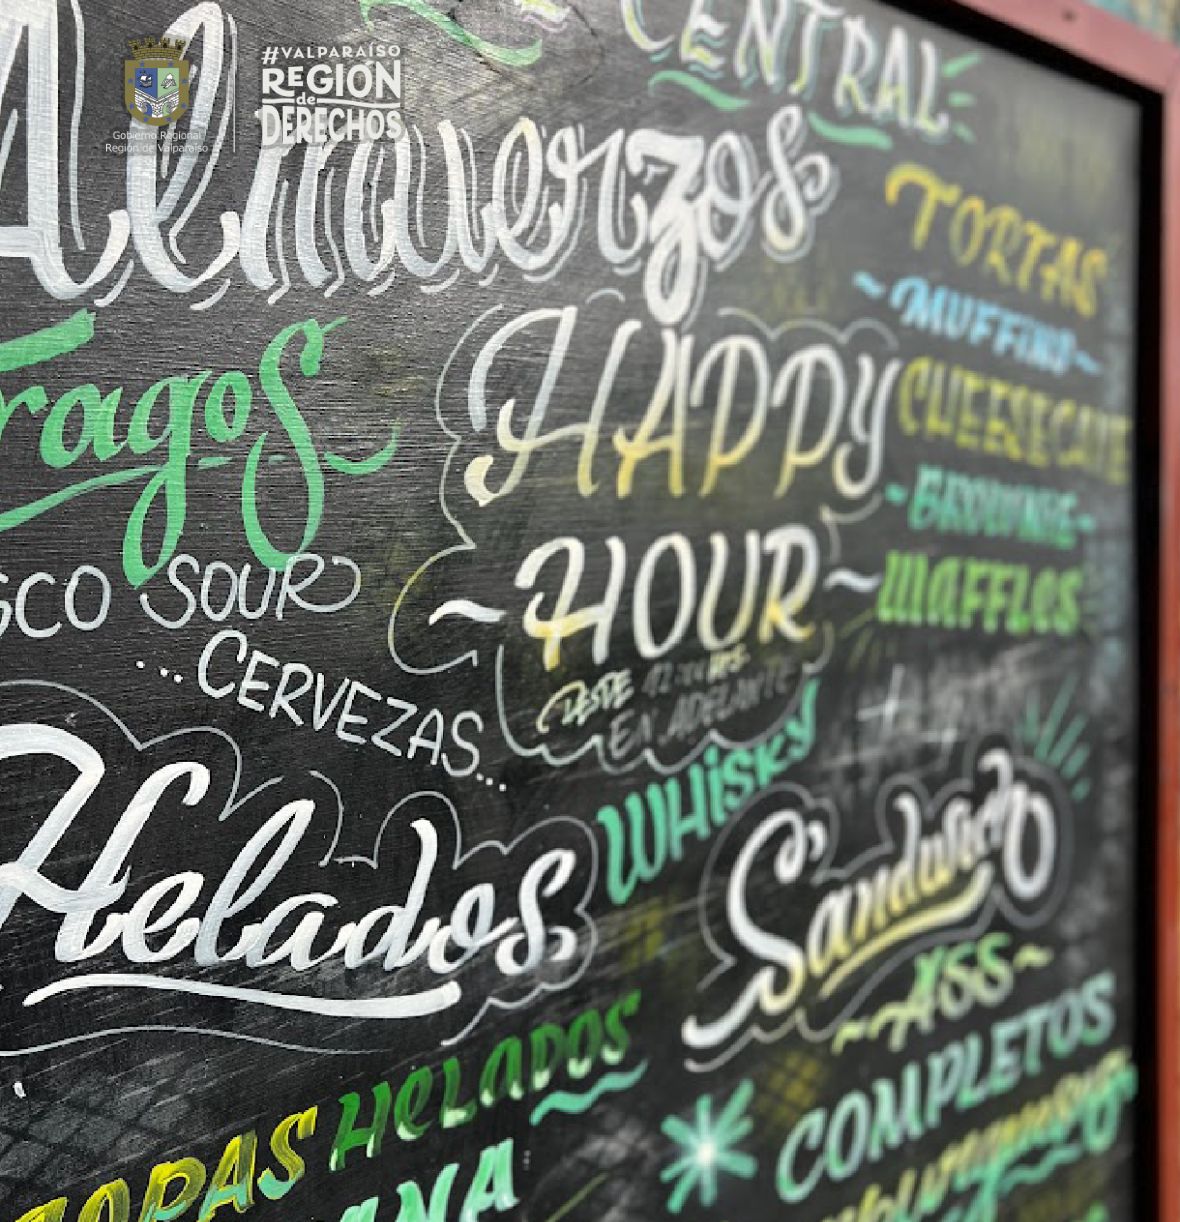 Gobierno Regional
Región de Valparaíso
#VALPARAÍSO
REGIÓN
de
DERECHOS
CENTRAL
Almuerzos
TORTAS
~MUFFINS~
CHEESECAKE
~BROWNIE~
WAFFLES
Tragos
SOUR
...CERVEZAS...
HAPPY
~HOUR~
DESDE
EN ADELANTE
WHiSKY
Helados
Sandwich
~ASS~
COMPLETOS
COPAS HELADOS